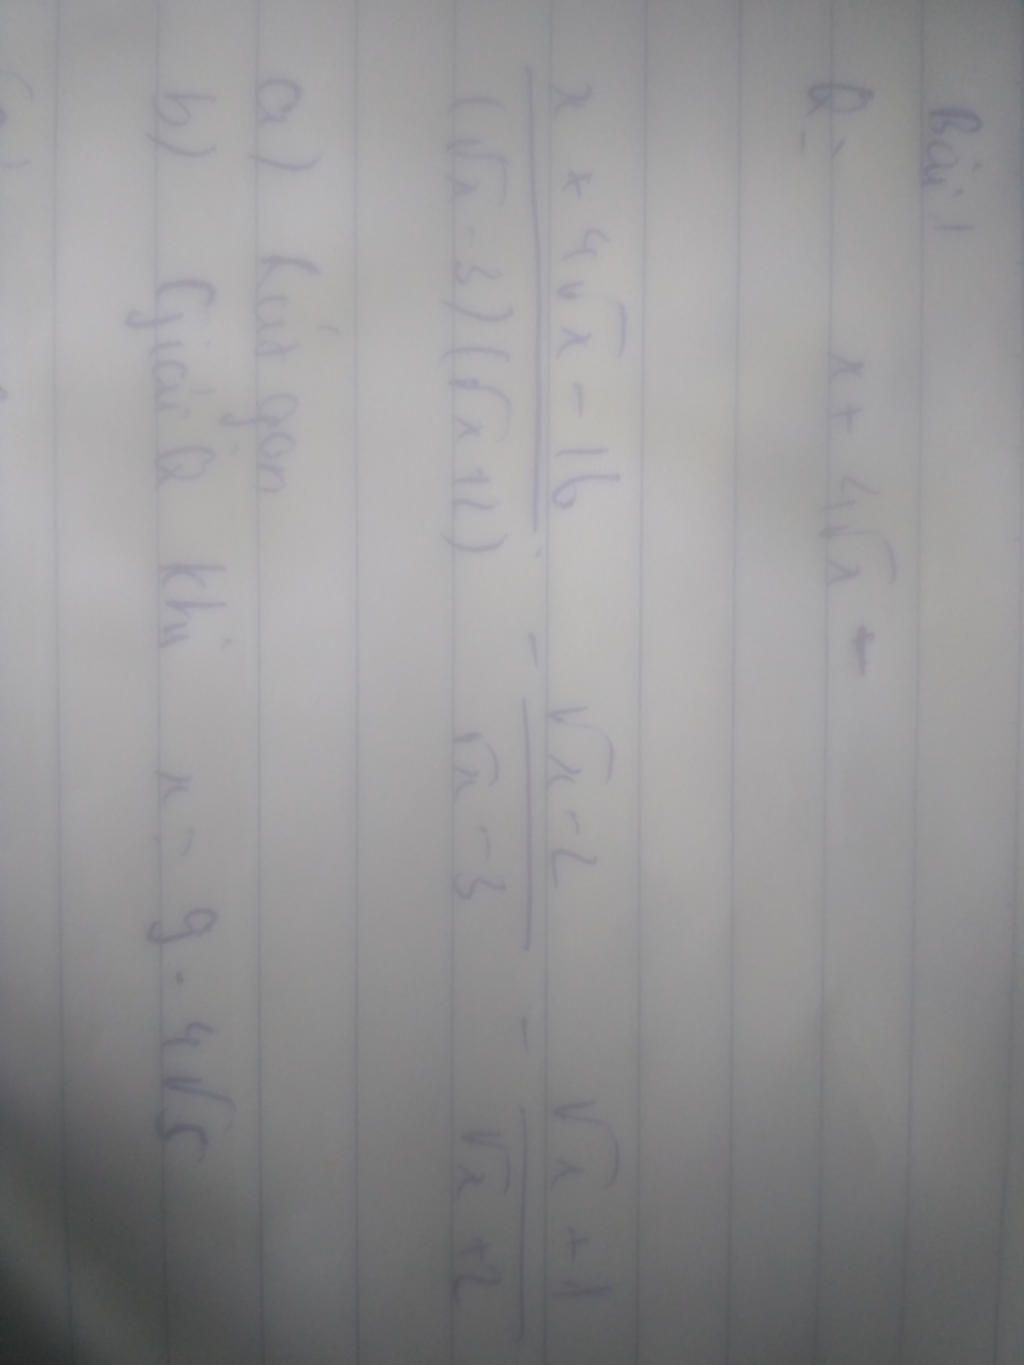 Bài 1
Q = x + 4√x -
x + 4√x - 16 / (√x - 3)(√x + 2) - √x - 2 / √x - 3 - √x + 1 / √x + 2
a) Rút gọn
b) Giải Q khi x = 9 - 4√5